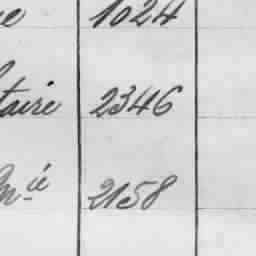 1024
taire 2346
2158